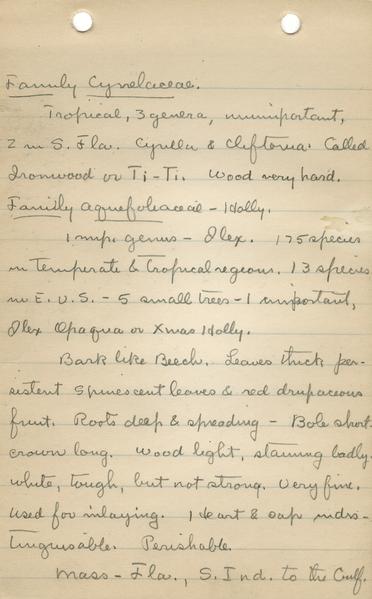 Family Cyrelaceae.
Tropical, 3 genera, unimportant,
2 in S. Fla. Cyrilla & Cliftonia. Called
Ironwood or Ti-Ti. Wood very hard.
Family Aquefoleaceae - Holly.
1 imp. genus - Ilex. 175 species
in temperate & tropical regions. 13 species
in E. U.S. - 5 small trees - 1 important,
Ilex Opaqua or Xmas Holly.
Bark like Beech. Leaves thick per-
sistent spinescent leaves & red drupaceous
fruit. Roots deep & spreading - Bole short
crown long. Wood light, staining badly.
white, tough, but not strong. Very fine.
Used for inlaying. Heart & sap indis-
tinguisable. Perishable.
Mass - Fla., S. Ind. to the Gulf.